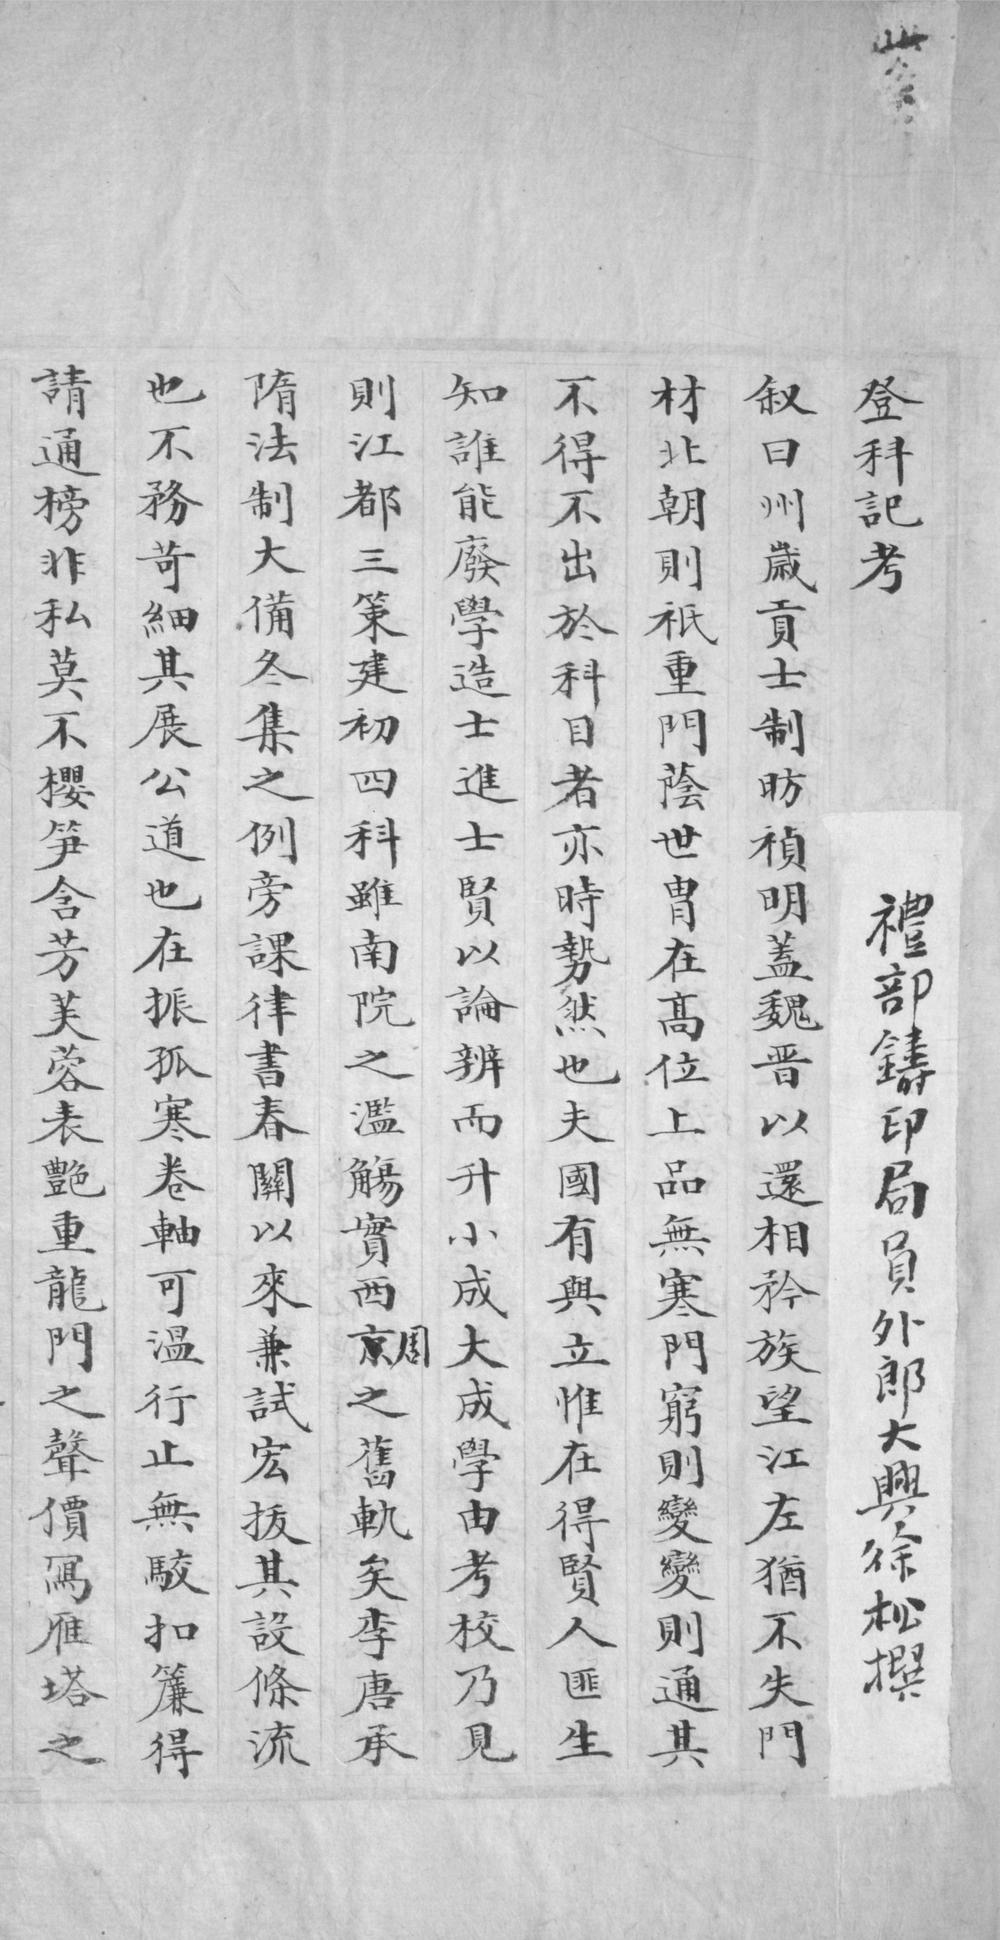 登科記考 禮部鑄印局員外郎大興徐松撰
叙曰州歲貢士制昉禎明蓋魏晋以還相矜族望江左猶不失門
材北朝則祇重門蔭世胄在高位上品無寒門窮則變變則通其
不得不出於科目者亦時勢然也夫國有與立惟在得賢人匪生
知誰能廢學造士進士賢以論辨而升小成大成學由考校乃見
則江都三策建初四科雖南院之濫觴實西京周之舊軌矣李唐承
隋法制大備冬集之例旁課律書春關以來兼試宏拔其設條流
也不務苛細其展公道也在振孤寒卷軸可溫行止無駮扣簾得
請通榜非私莫不櫻笋含芳芙蓉表艷重龍門之聲價寫雁塔之